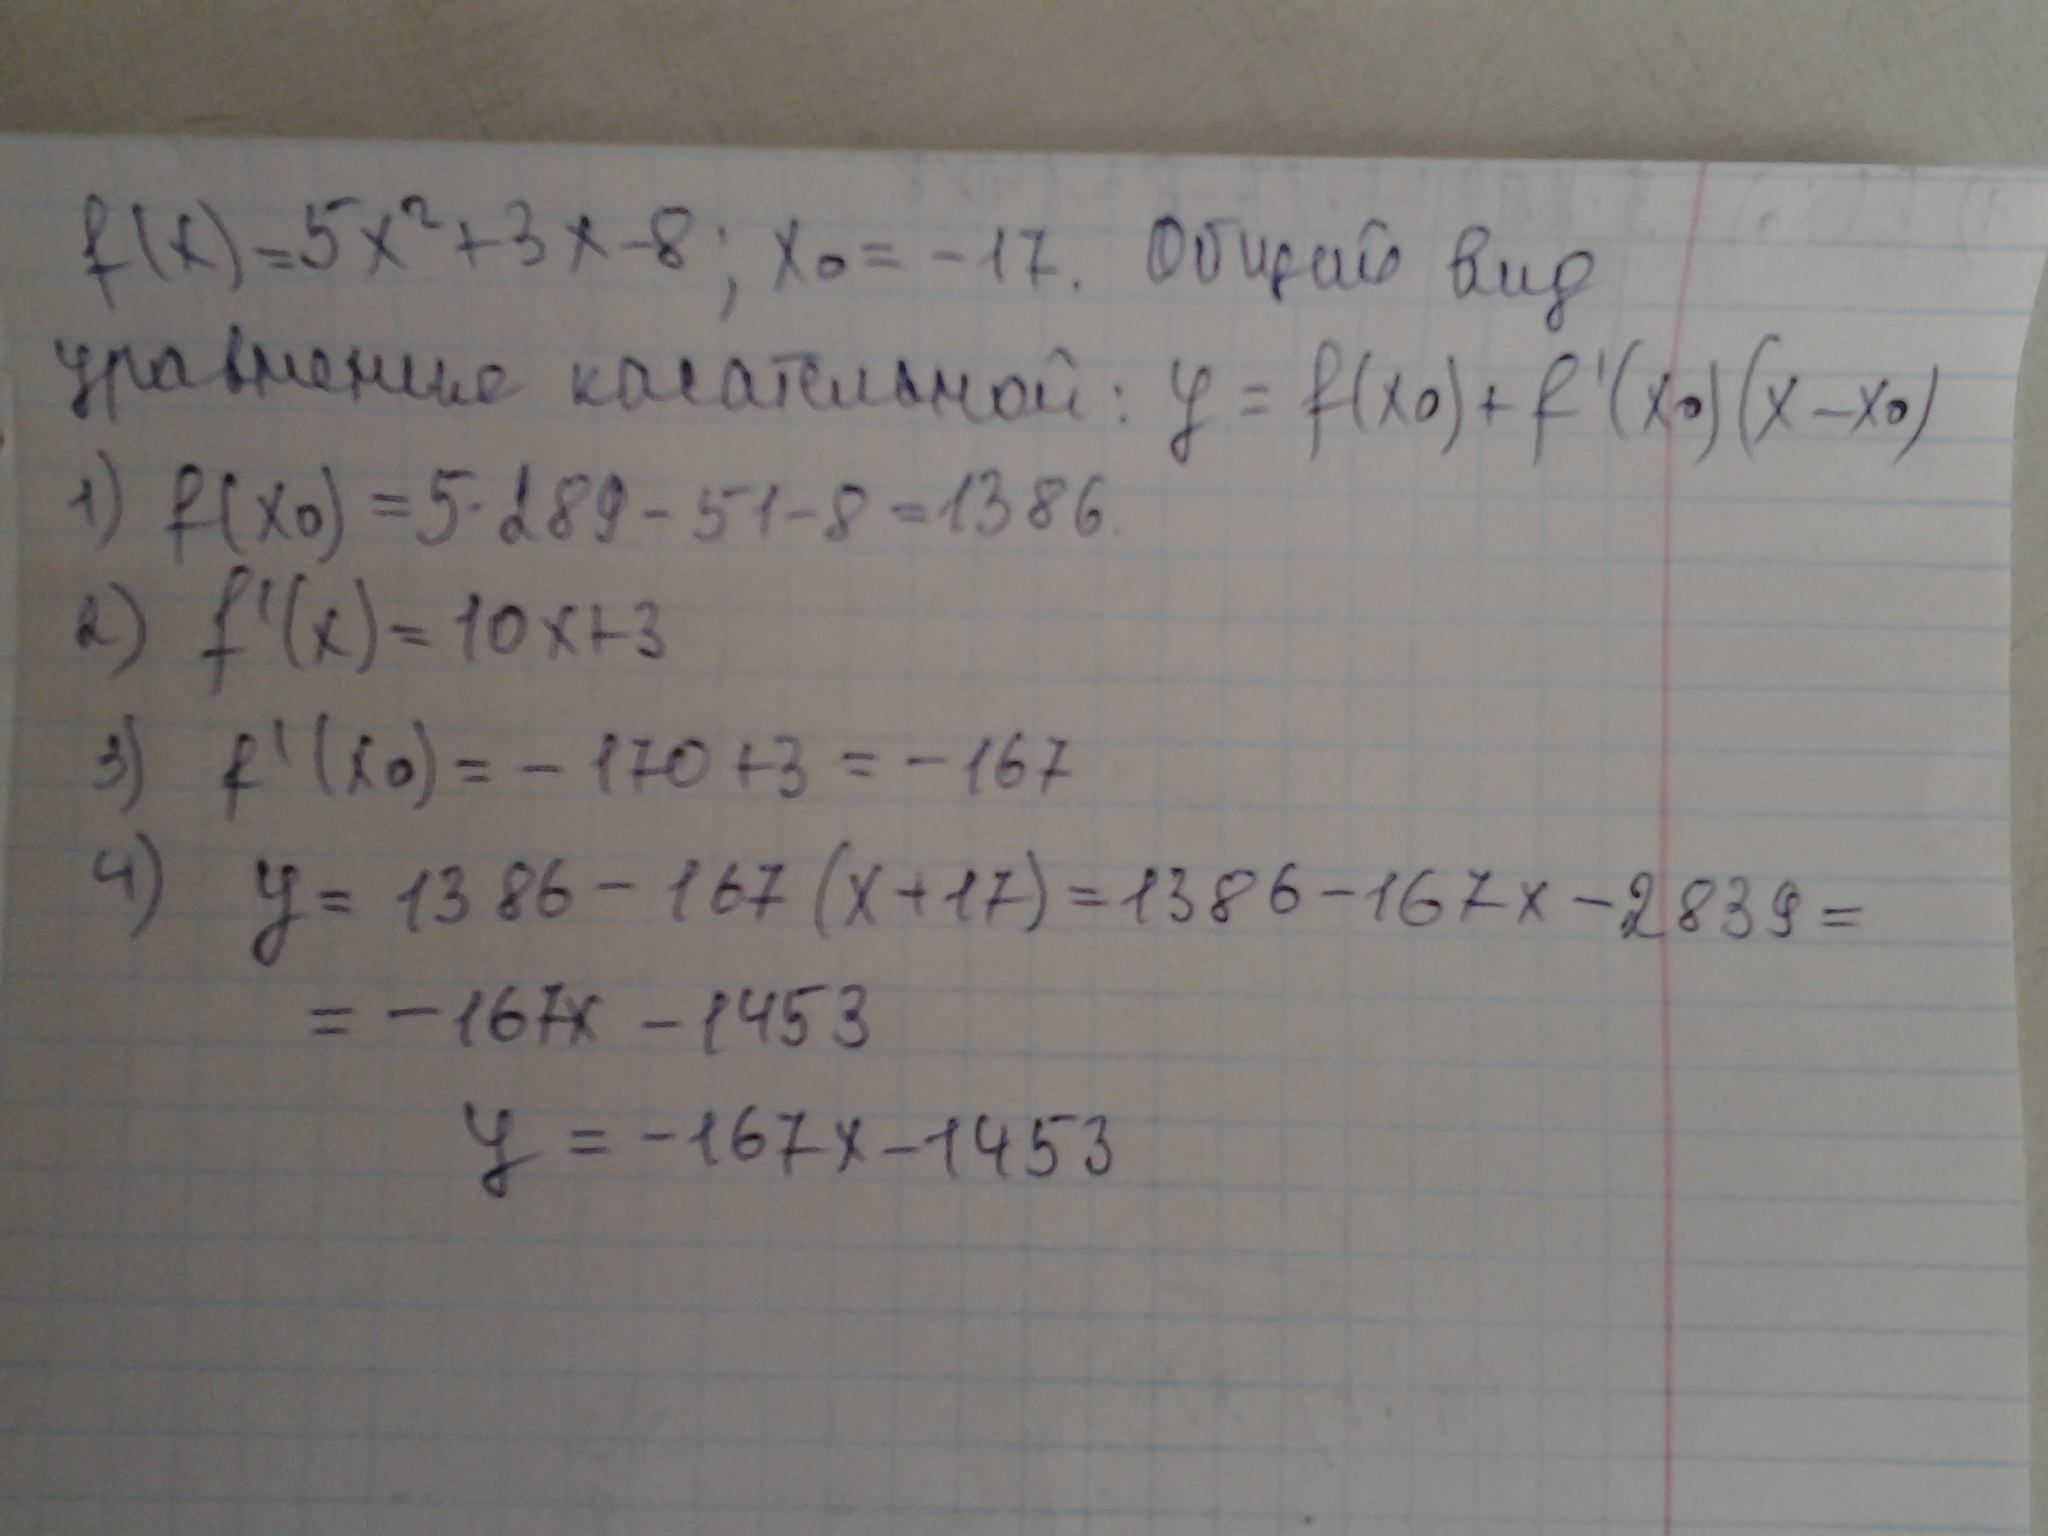 f(x)=5x²+3x-8; x₀=-17. Общий вид
уравнение касательной: y=f(x₀)+f'(x₀)(x-x₀)
1) f(x₀)=5·289-51-8=1386.
2) f'(x)=10x+3
3) f'(x₀)=-170+3=-167
4) y=1386-167(x+17)=1386-167x-2839=
=-167x-1453
y=-167x-1453